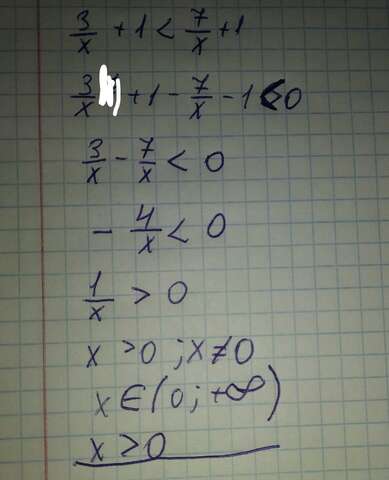 3/x + 1 < 7/x + 1
3/x + 1 - 7/x - 1 < 0
3/x - 7/x < 0
- 4/x < 0
1/x > 0
x > 0 ; x ≠ 0
x ∈ (0 ; +∞)
x > 0